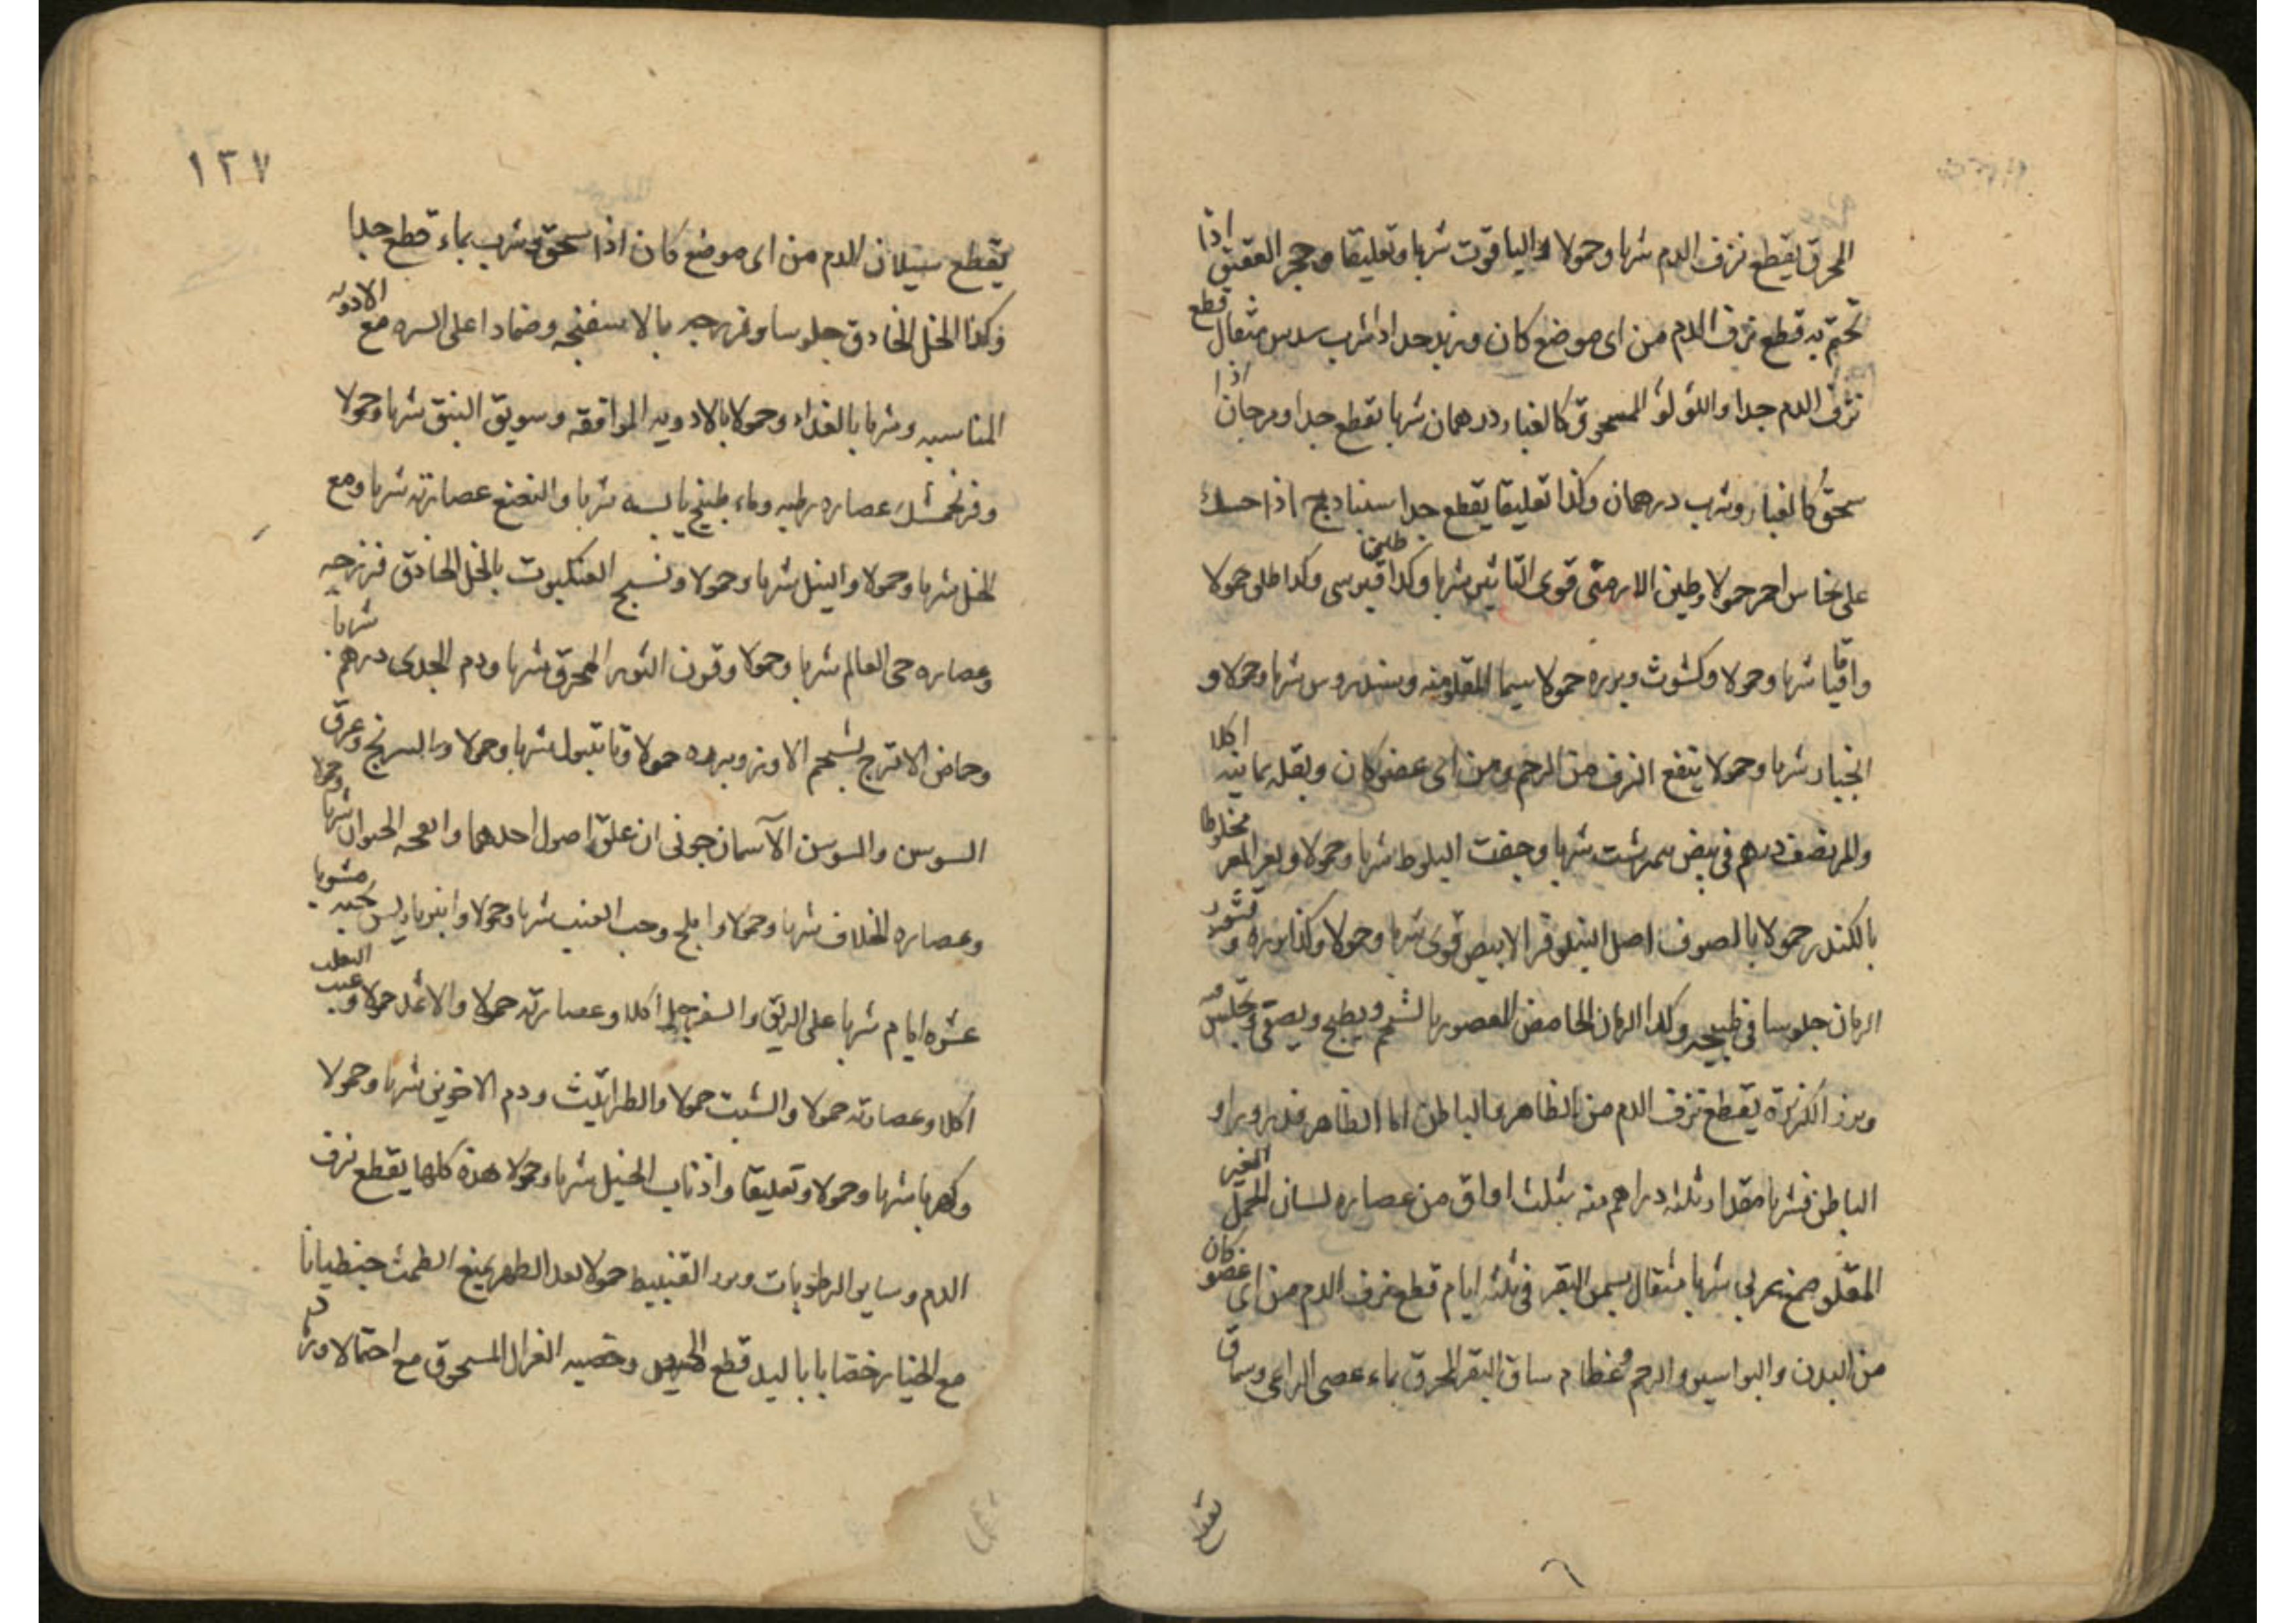 المحرق يقطع نزف الدم شربا وحمولا والياقوت شربا وتعليقا وحجر العقيق اذا
تختم به قطع نزف الدم من اى موضع كان وزبد جدا اذا شرب سدس مثقال قطع
نزف الدم جدا واللولو المسحوق كالغبار درهمان شربا يقطع جدا ومرجان اذا
سحق كالغبار وشرب درهمان وكذا تعليقا يقطع جدا سنبادج اذا حسك
على نحاس احمر حمولا وطين الارمنى قوى التاثير شربا وكذا طين قبرسى وكذا طلق حمولا
واقاقيا شربا وحمولا وكشوث وبزره حمولا سيما المقلو منه وسندروس شربا وحمولا و
انجبار شربا وحمولا ينفع النزف من الرحم ومن اى عضو كان وبقله يمانيه اكلا
والمر نصف درهم فى بيض نمرشت شربا وجفت البلوط شربا وحمولا وبعر المعز مخلوطا
بالكندر حمولا بالصوف اصل النيلوفر الابيض قوى شربا وحمولا وكذا بزره و قشور
الرمان جلوسا فى طبيخه وكذا الرمان الحامض المعصور بالشحم ويطبخ ويصفى وتجلس فيه
وبزر الكزبرة يقطع نزف الدم من الظاهر والباطن اما الظاهر فذرورا و
الباطن فشربا مقدار ثلثه دراهم منه بثلث اواق من عصاره لسان الحمل الغير
المقلو صمغ عربى شربا مثقال بسمن البقر فى ثلثه ايام قطع نزف الدم من اى عضو كان
من البدن والبواسير والرحم وعظام ساق البقر المحرق بماء عصى الراعى وسماق
يقطع
١٣٧
يقطع سيلان الدم من اى موضع كان اذا سحق وشرب بماء قطع جدا
وكذا الخل الحاذق جلوسا وفرزجه بالاسفنجه وضمادا على السره مع الادويه
المناسبه وشربا بالغداء وحمولا بالادويه الموافقه وسويق النبق شربا وحمولا
وفرنجمشك عصاره رطبه وماء طبيخ يابسه شربا والنعنع عصارته شربا ومع
الخل شربا وحمولا والنيل شربا وحمولا ونسيج العنكبوت بالخل الحاذق فرزجه
وعصاره حى العالم شربا وحمولا وقرون الثور المحرق شربا ودم الجدى درهم شربا
وحماض الاترج بشحم الاوز وبرده حمولا وقاتبول شربا وحمولا والسرنج وعرق
السوسن والسوسن الآسمان جونى ان علق اصول احدهما وانفحه الحيوان شربا وحمولا
وعصاره الخلاف شربا وحمولا واملج وحب العنب شربا وحمولا وانبرباريس بحبه مشويا
عشره ايام شربا على الريق والسفرجل اكلا وعصارته حمولا والاثمد حمولا وعنب الثعلب
اكلا وعصارته حمولا والشبت حمولا والطراثيث ودم الاخوين شربا وحمولا
وكهربا شربا وحمولا وتعليقا واذناب الخيل شربا وحمولا هذه كلها يقطع نزف
الدم وساير الرطوبات وبزر القنبيط حمولا بعد الطهر يمنع الطمث جنطيانا
مع الخيار خضابا باليد قطع الحيض وخصيه الغزال المسحوق مع احتمالا